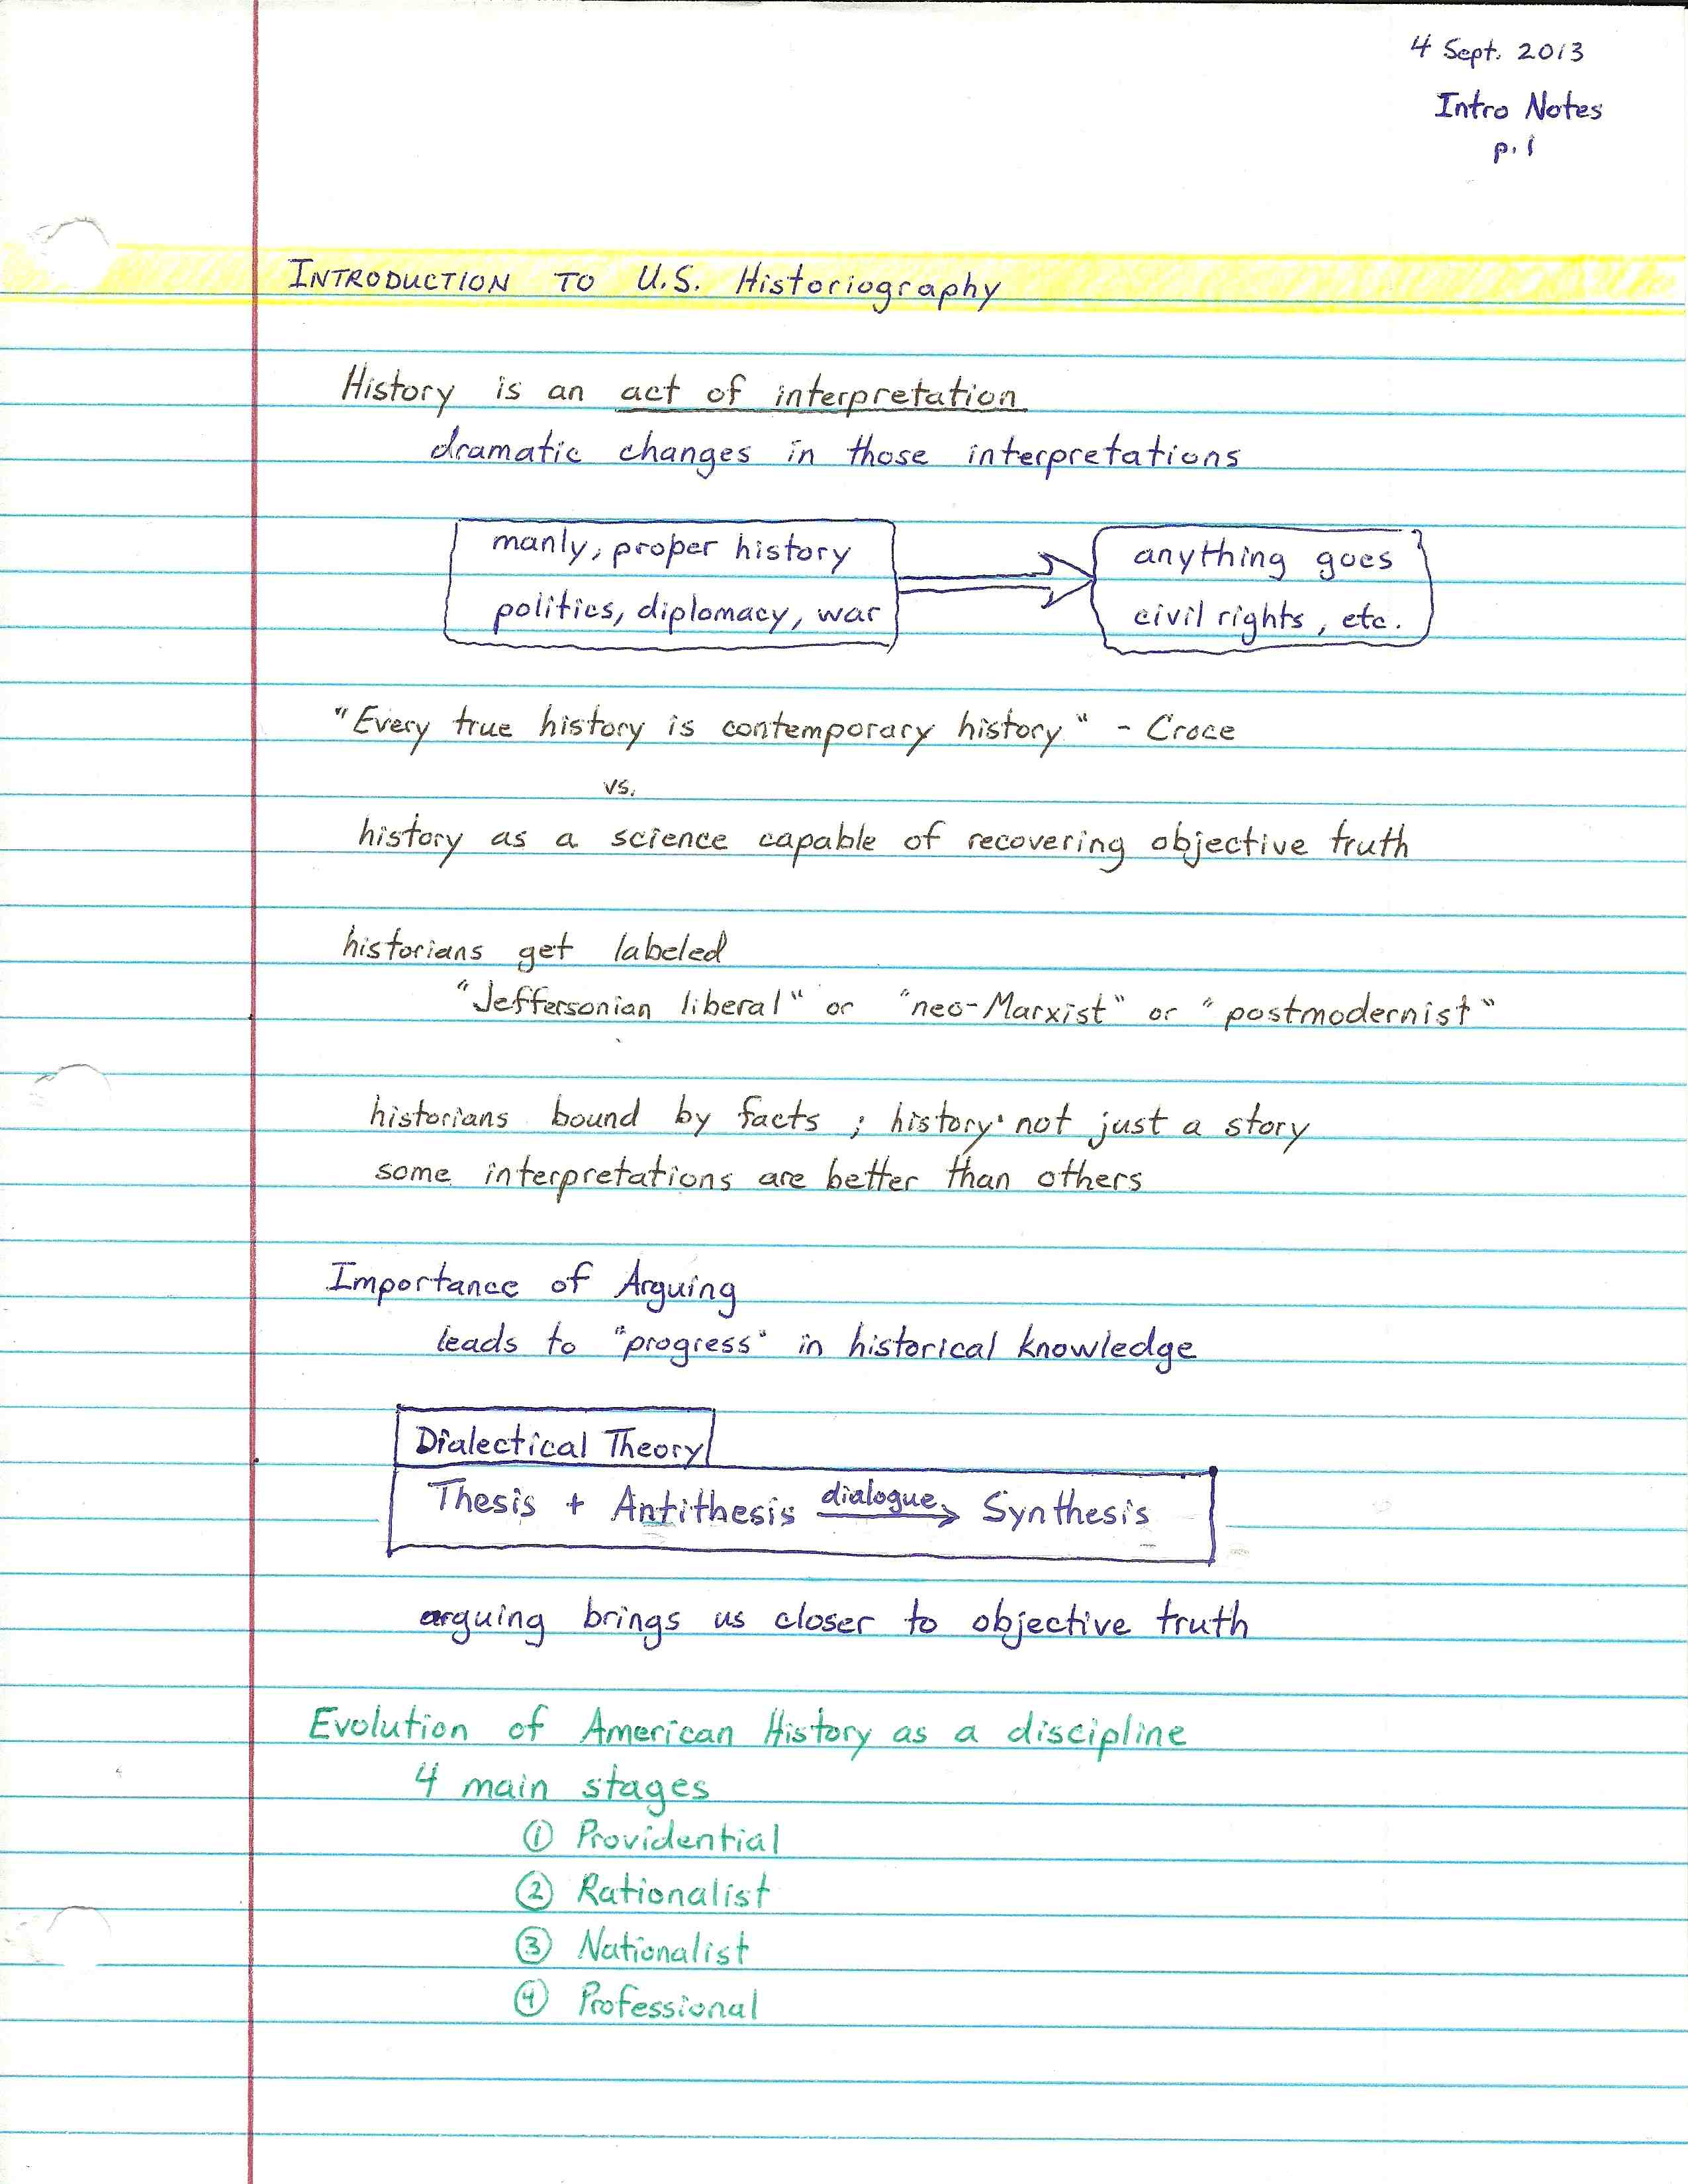 4 Sept. 2013
Intro Notes
p. 1
INTRODUCTION TO U.S. Historiography
History is an act of interpretation
dramatic changes in those interpretations
manly, proper history
politics, diplomacy, war
anything goes
civil rights, etc.
"Every true history is contemporary history" - Croce
vs.
history as a science capable of recovering objective truth
historians get labeled
"Jeffersonian liberal" or "neo-Marxist" or "postmodernist"
historians bound by facts ; history not just a story
some interpretations are better than others
Importance of Arguing
leads to "progress" in historical knowledge
Dialectical Theory
Thesis + Antithesis dialogue → Synthesis
arguing brings us closer to objective truth
Evolution of American History as a discipline
4 main stages
① Providential
② Rationalist
③ Nationalist
④ Professional